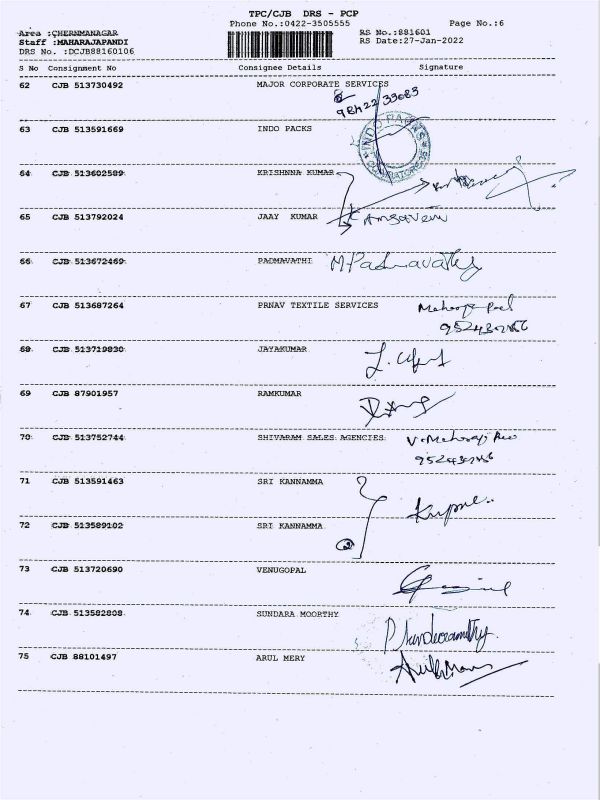 TPC/CJB DRS - PCP
Area :CHERNMANAGAR Phone No.:0422-3505555 Page No.:6
Staff :MAHARAJAPANDI RS No.:881601
DRS No. :DCJB88160106 RS Date:27-Jan-2022
S No Consignment No Consignee Details Signature
62 CJB 513730492 MAJOR CORPORATE SERVICES
98422 33083
63 CJB 513591669 INDO PACKS
INDO PACKS
COIMBATORE-35
64 CJB 513602589 KRISHNNA KUMAR
65 CJB 513792024 JAAY KUMAR Amsaveni
66 CJB 513672469 PADMAVATHI M.Padmavathy
67 CJB 513687264 PRNAV TEXTILE SERVICES
68 CJB 513719830 JAYAKUMAR
69 CJB 87901957 RAMKUMAR
70 CJB 513752744 SHIVARAM SALES AGENCIES
71 CJB 513591463 SRI KANNAMMA
72 CJB 513589102 SRI KANNAMMA
73 CJB 513720690 VENUGOPAL
74 CJB 513582808 SUNDARA MOORTHY
75 CJB 88101497 ARUL MERY